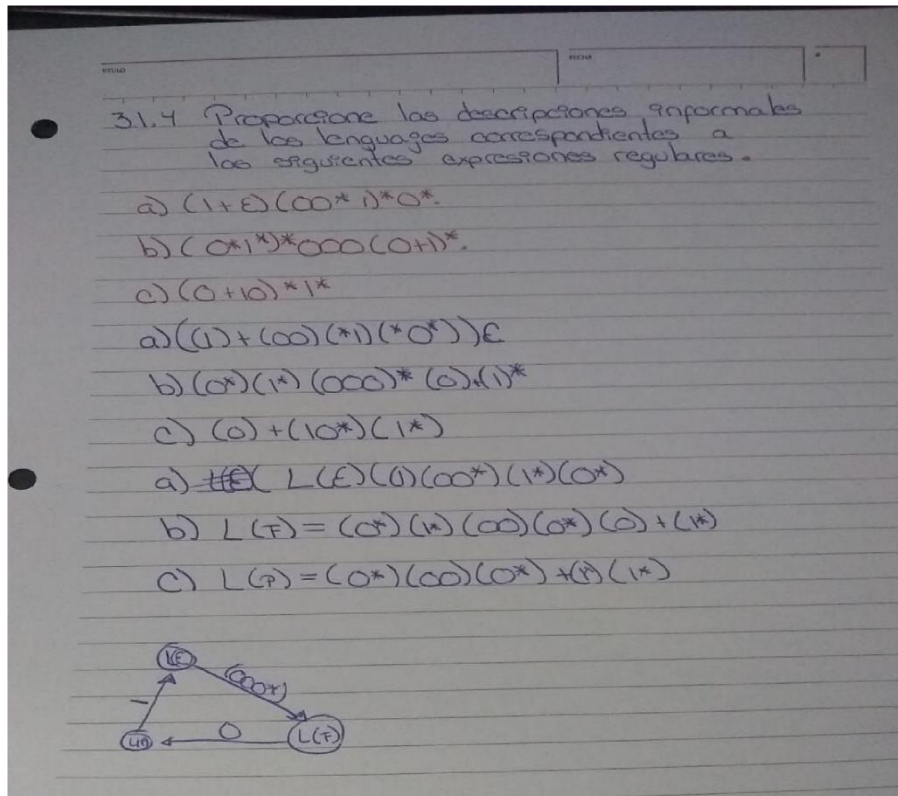 TITULO
FECHA
3.1.4 Proporcione las descripciones informales
de los lenguajes correspondientes a
las siguientes expresiones regulares.
a) (1+ε)(00*1)*0*.
b) (0*1*)*000(0+1)*.
c) (0+10)*1*
a) ((1)+(00)(*1)(*0*))ε
b) (0*)(1*)(000)*(0)+(1)*
c) (0)+(10*)(1*)
a) L(E)(1)(00*)(1*)(0*)
b) L(F)=(0*)(1*)(00)(0*)(0)+(1*)
c) L(F)=(0*)(00)(0*)+(1*)(1*)
L(E)
(00*)
1
0
L(F)